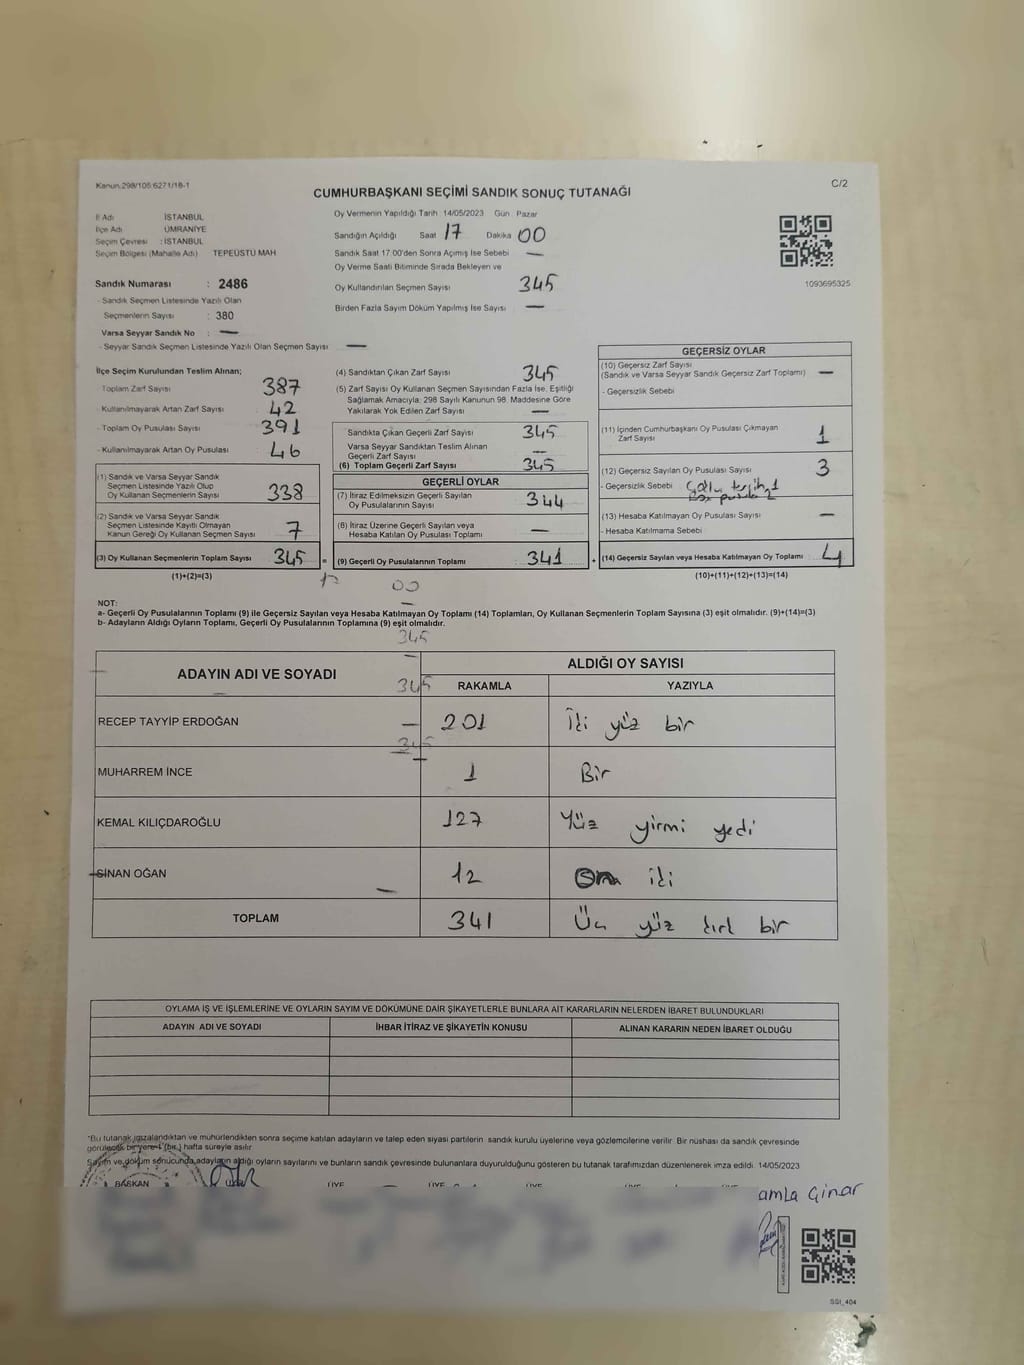 Kanun.298/105:6271/18-1
C/2
CUMHURBAŞKANI SEÇİMİ SANDIK SONUÇ TUTANAĞI
İl Adı İSTANBUL
İlçe Adı ÜMRANİYE
Seçim Çevresi : İSTANBUL
Seçim Bölgesi (Mahalle Adı) TEPEÜSTÜ MAH
Sandık Numarası : 2486
- Sandık Seçmen Listesinde Yazılı Olan
Seçmenlerin Sayısı : 380
Varsa Seyyar Sandık No : —
- Seyyar Sandık Seçmen Listesinde Yazılı Olan Seçmen Sayısı —
Oy Vermenin Yapıldığı Tarih 14/05/2023 Gün Pazar
Sandığın Açıldığı Saat 17 Dakika 00
Sandık Saat 17.00'den Sonra Açımış İse Sebebi —
Oy Verme Saati Bitiminde Sırada Bekleyen ve
Oy Kullandırılan Seçmen Sayısı 345
Birden Fazla Sayım Döküm Yapılmış İse Sayısı —
1093695325
İlçe Seçim Kurulundan Teslim Alınan;
- Toplam Zarf Sayısı 387
- Kullanılmayarak Artan Zarf Sayısı 42
- Toplam Oy Pusulası Sayısı 391
- Kullanılmayarak Artan Oy Pusulası 46
(1) Sandık ve Varsa Seyyar Sandık
Seçmen Listesinde Yazılı Olup
Oy Kullanan Seçmenlerin Sayısı 338
(2) Sandık ve Varsa Seyyar Sandık
Seçmen Listesinde Kayıtlı Olmayan
Kanun Gereği Oy Kullanan Seçmen Sayısı 7
(3) Oy Kullanan Seçmenlerin Toplam Sayısı 345
(1)+(2)=(3)
(4) Sandıktan Çıkan Zarf Sayısı 345
(5) Zarf Sayısı Oy Kullanan Seçmen Sayısından Fazla İse, Eşitliği
Sağlamak Amacıyla; 298 Sayılı Kanunun 98. Maddesine Göre
Yakılarak Yok Edilen Zarf Sayısı —
Sandıkta Çıkan Geçerli Zarf Sayısı 345
Varsa Seyyar Sandıktan Teslim Alınan
Geçerli Zarf Sayısı —
(6) Toplam Geçerli Zarf Sayısı 345
GEÇERLİ OYLAR
(7) İtiraz Edilmeksizin Geçerli Sayılan
Oy Pusulalarının Sayısı 344
(8) İtiraz Üzerine Geçerli Sayılan veya
Hesaba Katılan Oy Pusulası Toplamı —
= (9) Geçerli Oy Pusulalarının Toplamı 341 +
GEÇERSİZ OYLAR
(10) Geçersiz Zarf Sayısı
(Sandık ve Varsa Seyyar Sandık Geçersiz Zarf Toplamı) —
- Geçersizlik Sebebi
(11) İçinden Cumhurbaşkanı Oy Pusulası Çıkmayan
Zarf Sayısı 1
(12) Geçersiz Sayılan Oy Pusulası Sayısı 3
- Geçersizlik Sebebi
(13) Hesaba Katılmayan Oy Pusulası Sayısı —
- Hesaba Katılmama Sebebi
(14) Geçersiz Sayılan veya Hesaba Katılmayan Oy Toplamı 4
(10)+(11)+(12)+(13)=(14)
17 00
NOT:
a- Geçerli Oy Pusulalarının Toplamı (9) ile Geçersiz Sayılan veya Hesaba Katılmayan Oy Toplamı (14) Toplamları, Oy Kullanan Seçmenlerin Toplam Sayısına (3) eşit olmalıdır. (9)+(14)=(3)
b- Adayların Aldığı Oyların Toplamı, Geçerli Oy Pusulalarının Toplamına (9) eşit olmalıdır.
345
345
345
ADAYIN ADI VE SOYADI ALDIĞI OY SAYISI
RAKAMLA YAZIYLA
RECEP TAYYİP ERDOĞAN 201 İki yüz bir
MUHARREM İNCE 1 Bir
KEMAL KILIÇDAROĞLU 127 Yüz yirmi yedi
SİNAN OĞAN 12 On iki
TOPLAM 341 Üç yüz kırk bir
OYLAMA İŞ VE İŞLEMLERİNE VE OYLARIN SAYIM VE DÖKÜMÜNE DAİR ŞİKAYETLERLE BUNLARA AİT KARARLARIN NELERDEN İBARET BULUNDUKLARI
ADAYIN ADI VE SOYADI İHBAR İTİRAZ VE ŞİKAYETİN KONUSU ALINAN KARARIN NEDEN İBARET OLDUĞU
*Bu tutanak imzalandıktan ve mühürlendikten sonra seçime katılan adayların ve talep eden siyasi partilerin sandık kurulu üyelerine veya gözlemcilerine verilir. Bir nüshası da sandık çevresinde
görülecek bir yere 1 (bir) hafta süreyle asılır.
Sayım ve döküm sonucunda adayların aldığı oyların sayılarını ve bunların sandık çevresinde bulunanlara duyurulduğunu gösteren bu tutanak tarafımızdan düzenlenerek imza edildi. 14/05/2023
BAŞKAN ÜYE ÜYE ÜYE ÜYE
amla Çınar
SSI_404